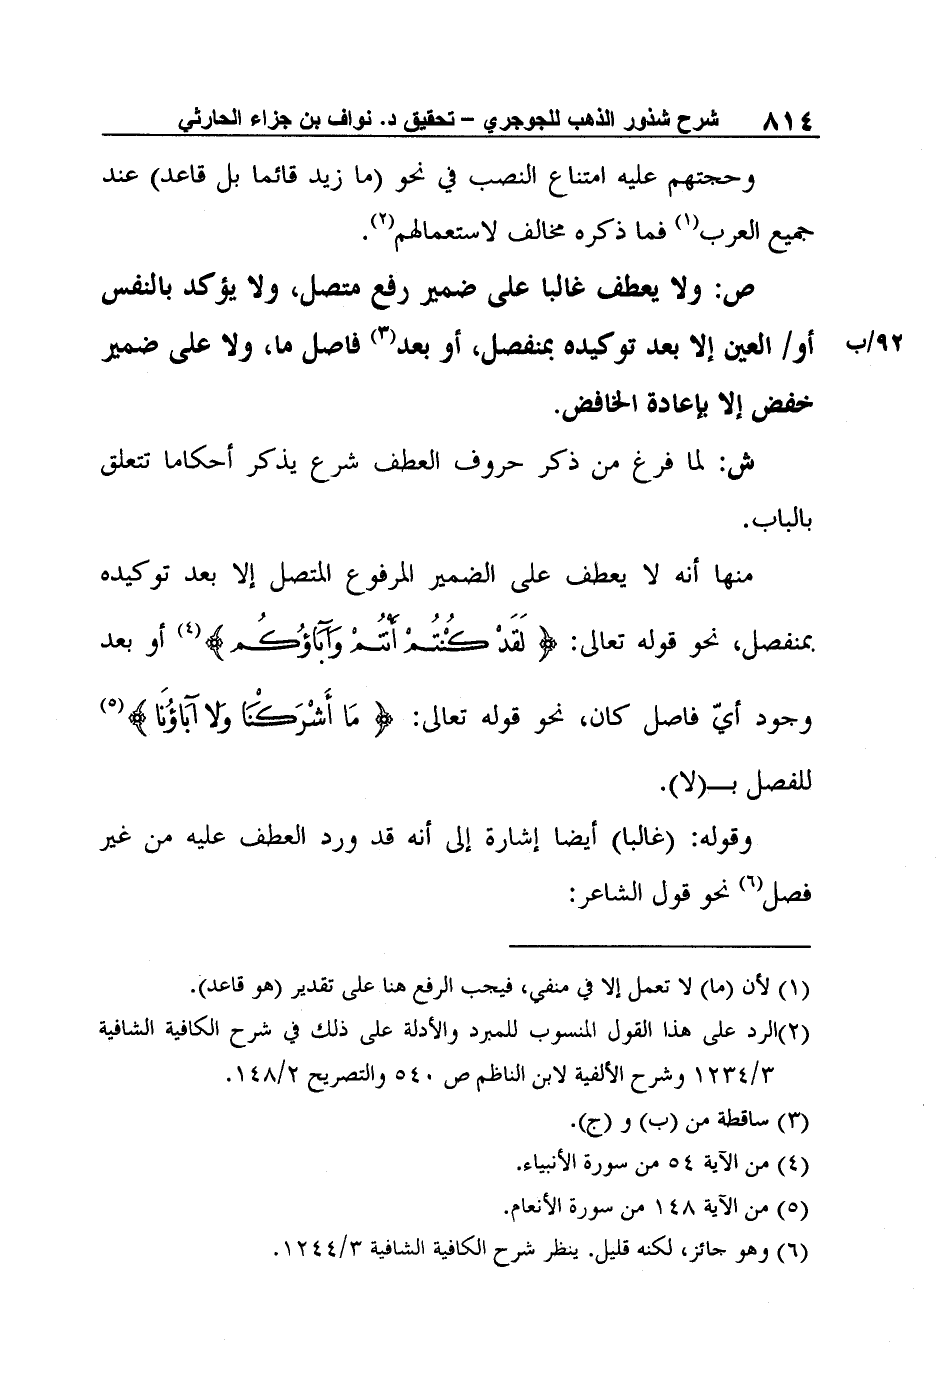 ٨١٤ شرح شذور الذهب للجوجري – تحقيق د. نواف بن جزاء الحارثي
وحجتهم عليه امتناع النصب في نحو (ما زيد قائما بل قاعد) عند
جميع العرب(١) فما ذكره مخالف لاستعمالهم(٢).
ص: ولا يعطف غالبا على ضمير رفع متصل، ولا يؤكد بالنفس
أو/ العين إلا بعد توكيده بمنفصل، أو بعد(٣) فاصل ما، ولا على ضمير ٩٢/ب
خفض إلا بإعادة الخافض.
ش: لما فرغ من ذكر حروف العطف شرع يذكر أحكاما تتعلق
بالباب.
منها أنه لا يعطف على الضمير المرفوع المتصل إلا بعد توكيده
بمنفصل، نحو قوله تعالى: ﴿ لَقَدْ كُنتُمْ أَنتُمْ وَآبَاؤُكُم ﴾(٤) أو بعد
وجود أيّ فاصل كان، نحو قوله تعالى: ﴿ مَا أَشْرَكْنَا وَلا آبَاؤُنَا ﴾(٥)
للفصل بـ(لا).
وقوله: (غالبا) أيضا إشارة إلى أنه قد ورد العطف عليه من غير
فصل(٦) نحو قول الشاعر:
(١) لأن (ما) لا تعمل إلا في منفي، فيجب الرفع هنا على تقدير (هو قاعد).
(٢)الرد على هذا القول المنسوب للمبرد والأدلة على ذلك في شرح الكافية الشافية
١٢٣٤/٣ وشرح الألفية لابن الناظم ص ٥٤٠ والتصريح ١٤٨/٢.
(٣) ساقطة من (ب) و (ج).
(٤) من الآية ٥٤ من سورة الأنبياء.
(٥) من الآية ١٤٨ من سورة الأنعام.
(٦) وهو جائز، لكنه قليل. ينظر شرح الكافية الشافية ١٢٤٤/٣.